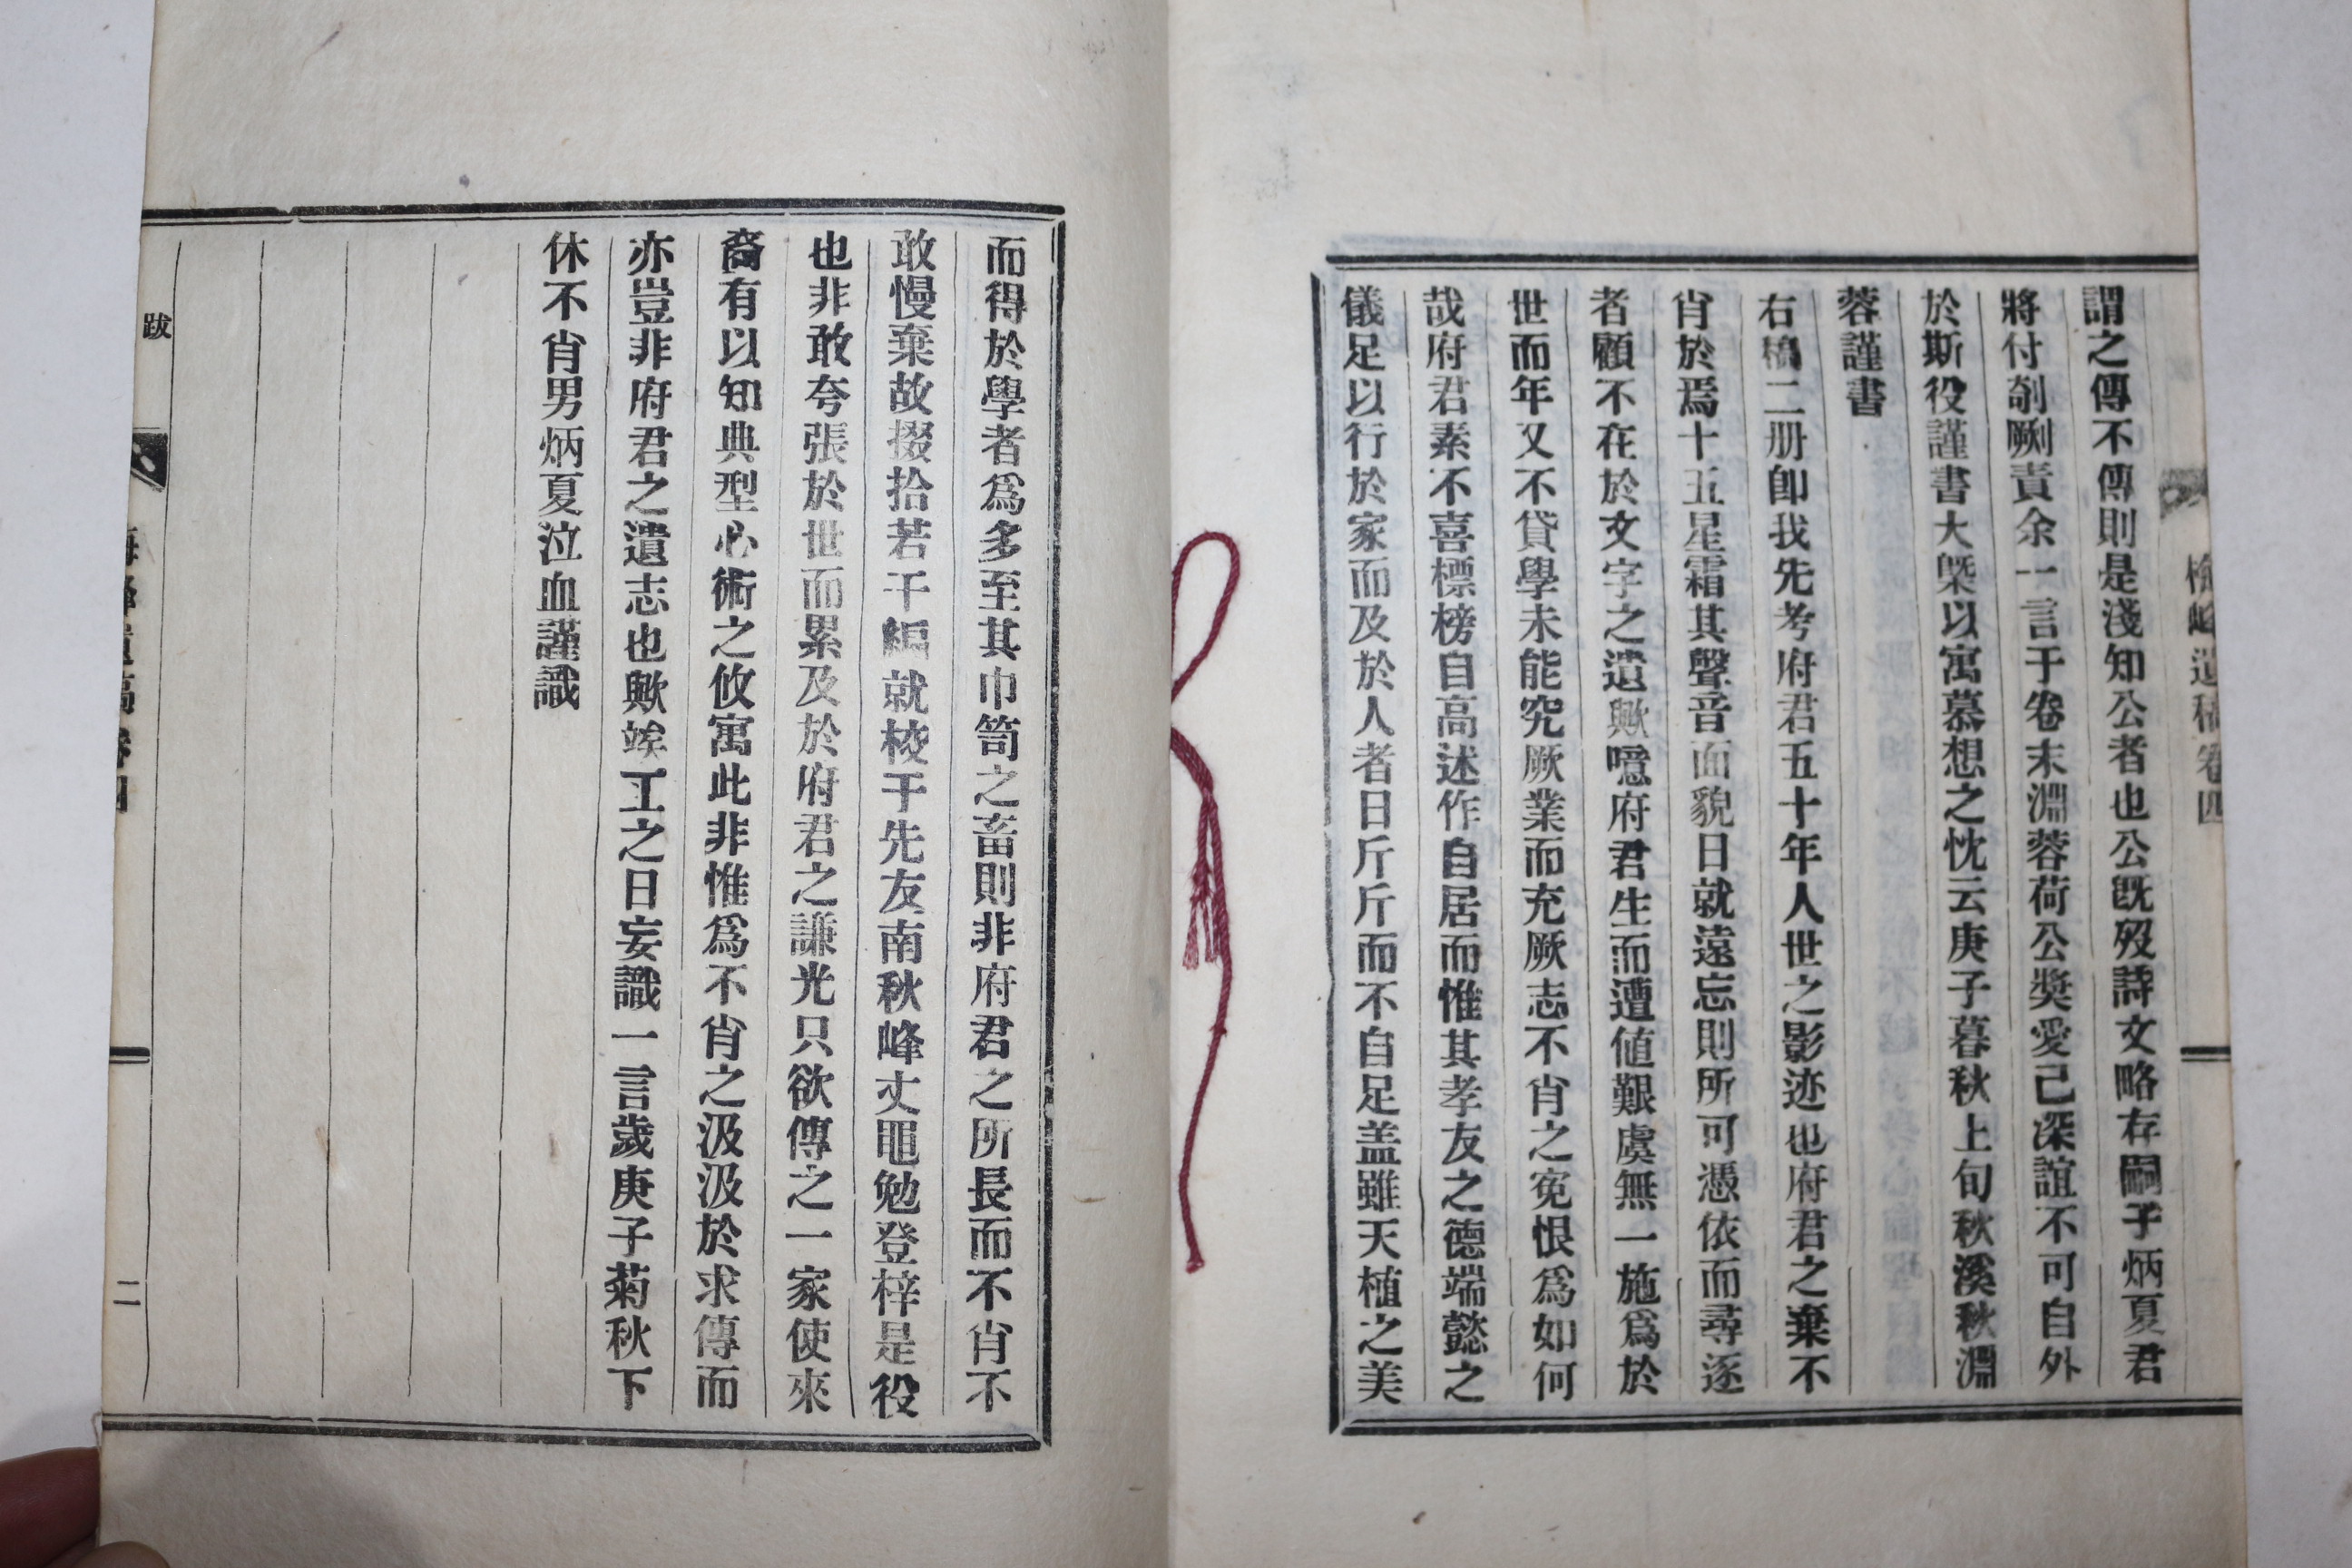 遺稿卷四
謂之傳不傳則是淺知公者也公旣歿詩文略存嗣子炳夏君
將付剞劂責余一言于卷末淵蓉荷公獎愛己深誼不可自外
於斯役謹書大槩以寓慕想之忱云庚子暮秋上旬秋溪秋淵
蓉謹書
右稿二册卽我先考府君五十年人世之影迹也府君之棄不
肖於焉十五星霜其聲音面貌日就遠忘則所可憑依而尋逐
者顧不在於文字之遺歟噫府君生而遭値艱虞無一施爲於
世而年又不貸學未能究厥業而充厥志不肖之寃恨爲如何
哉府君素不喜標榜自高述作自居而惟其孝友之德端懿之
儀足以行於家而及於人者日斤斤而不自足盖雖天植之美
而得於學者爲多至其巾笥之畜則非府君之所長而不肖不
敢慢棄故掇拾若干編就校于先友南秋峰丈黽勉登梓是役
也非敢夸張於世而累及於府君之謙光只欲傳之一家使來
裔有以知典型心術之攸寓此非惟爲不肖之汲汲於求傳而
亦豈非府君之遺志也歟竢工之日妄識一言歲庚子菊秋下
休不肖男炳夏泣血謹識
跋
二